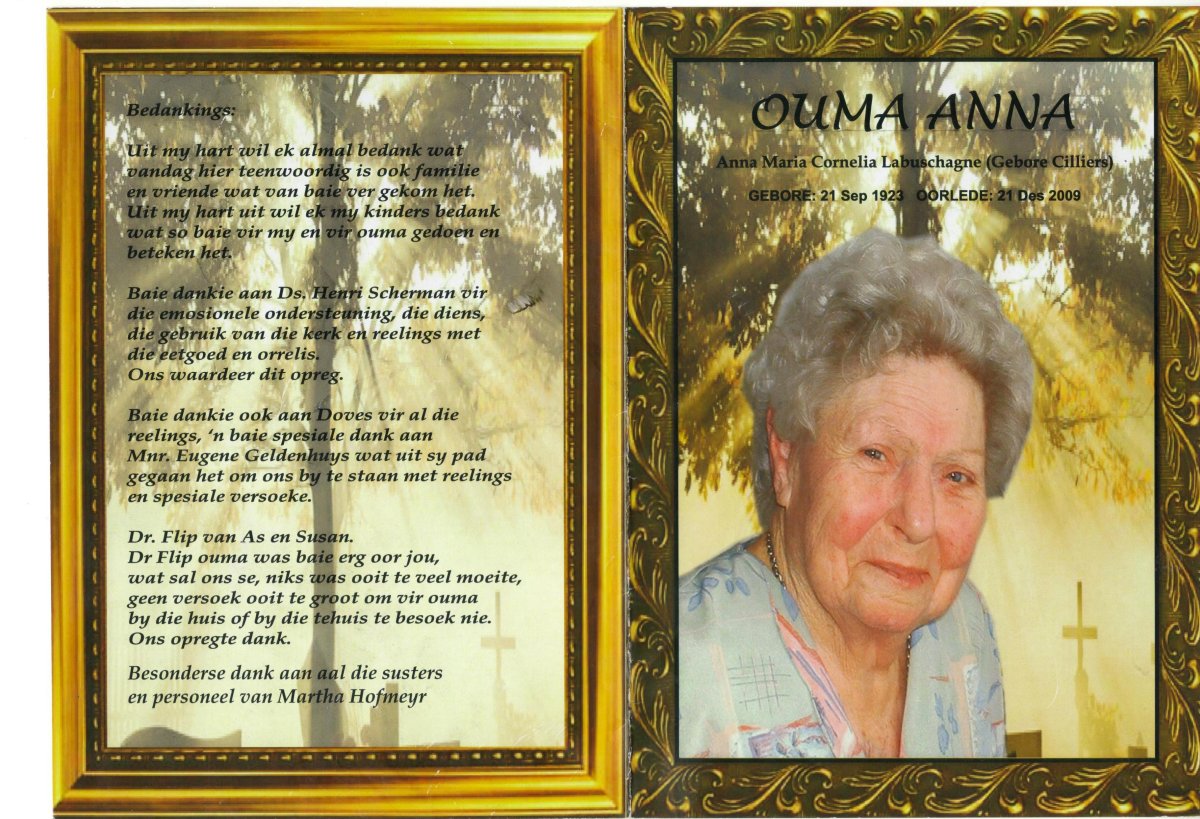 Bedankings:
Uit my hart wil ek almal bedank wat
vandag hier teenwoordig is ook familie
en vriende wat van baie ver gekom het.
Uit my hart uit wil ek my kinders bedank
wat so baie vir my en vir ouma gedoen en
beteken het.
Baie dankie aan Ds. Henri Scherman vir
die emosionele ondersteuning, die diens,
die gebruik van die kerk en reelings met
die eetgoed en orrelis.
Ons waardeer dit opreg.
Baie dankie ook aan Doves vir al die
reelings, ‘n baie spesiale dank aan
Mnr. Eugene Geldenhuys wat uit sy pad
gegaan het om ons by te staan met reelings
en spesiale versoeke.
Dr. Flip van As en Susan.
Dr Flip ouma was baie erg oor jou,
wat sal ons se, niks was ooit te veel moeite,
geen versoek ooit te groot om vir ouma
by die huis of by die tehuis te besoek nie.
Ons opregte dank.
Besonderse dank aan aal die susters
en personeel van Martha Hofmeyr
OUMA ANNA
Anna Maria Cornelia Labuschagne (Gebore Cilliers)
GEBORE: 21 Sep 1923 OORLEDE: 21 Des 2009